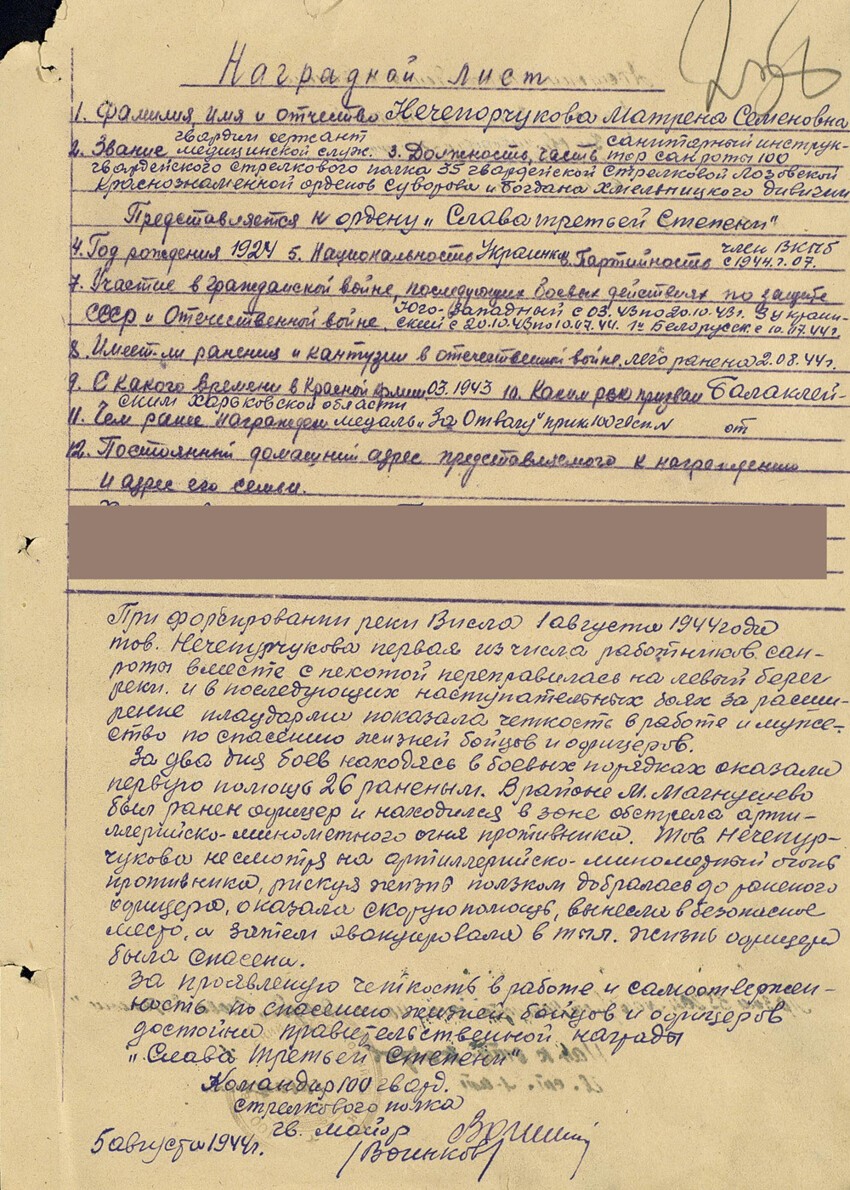 Наградной лист
1. Фамилия, имя и отчество Нечепорчукова Матрена Семеновна
2. Звание гвардии сержант медицинской служ. 3. Должность, часть санитарный инструк-
тор санроты 100
гвардейского стрелкового полка 35 гвардейской Стрелковой Лозовской
Краснознаменной орденов Суворова и Богдана Хмельницкого дивизии
Представляется к ордену „Слава третьей степени"
4. Год рождения 1924 5. Национальность Украинка 6. Партийность член ВКПб
с 1944 г. 07.
7. Участие в гражданской войне, последующих боевых действиях по защите
СССР и Отечественной войне. Юго-Западный с 03.43 по 20.10.43 г. 3 Украин-
ский с 20.10.43 по 10.07.44. 1й Белорусск. с 10.07.44 г.
8. Имеет ли ранения и кантузии в отечественной войне, лего ранена 2.08.44 г.
9. С какого времени в Красной Армии 03.1943 10. Каким рвк призван Балаклей-
ским Харьковской области
11. Чем ранее награжден медаль „За Отвагу" прик 100 гвсп. N от
12. Постоянный домашний адрес представляемого к награждению
и адрес его семьи.
При форсировании реки Висла 1 августа 1944 года
тов. Нечепурчукова первая из числа работников сан-
роты вместе с пехотой переправилась на левый берег
реки. и в последующих наступательных боях за расши-
рение плацдарма показала четкость в работе и муже-
ство по спасению жизней бойцов и офицеров.
За два дня боев находясь в боевых порядках оказала
первую помощь 26 раненым. В районе М. Магнушево
был ранен офицер и находился в зоне обстрела арти-
ллерийско-минометного огня противника. Тов Нечепур-
чукова несмотря на артиллерийско-минометный огонь
противника, рискуя жизнь ползком добралась до раненого
офицера, оказала скорую помощь, вынесла в безопасное
место, а затем эвакуировала в тыл. Жизнь офицера
была спасена.
За проявленую четкость в работе и самоотвержен-
ность по спасению жизней бойцов и офицеров
достойна правительственной награды
„Слава третьей степени"
Командир 100 гвард.
стрелкового полка
гв. майор
5 августа 1944 г. /Воинков/